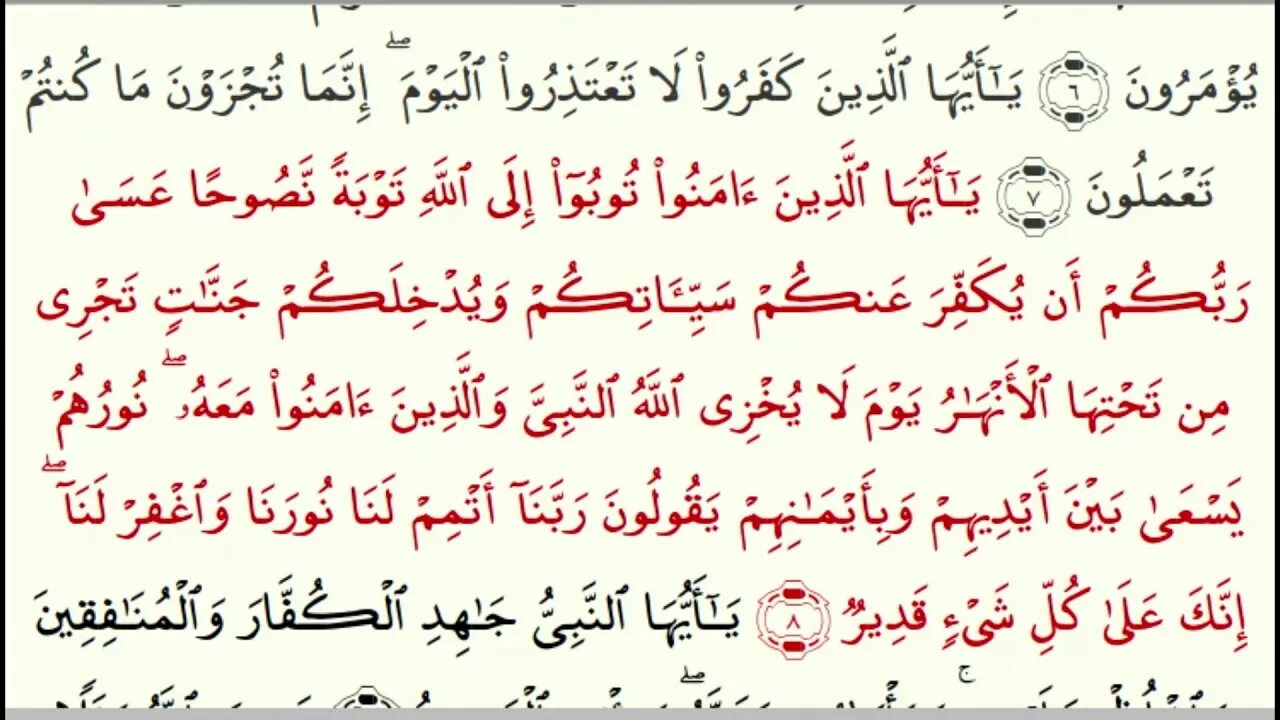 يُؤْمَرُونَ ٦ يَـٰٓأَيُّهَا ٱلَّذِينَ كَفَرُوا۟ لَا تَعْتَذِرُوا۟ ٱلْيَوْمَ ۖ إِنَّمَا تُجْزَوْنَ مَا كُنتُمْ
تَعْمَلُونَ ٧ يَـٰٓأَيُّهَا ٱلَّذِينَ ءَامَنُوا۟ تُوبُوٓا۟ إِلَى ٱللَّهِ تَوْبَةً نَّصُوحًا عَسَىٰ
رَبُّكُمْ أَن يُكَفِّرَ عَنكُمْ سَيِّـَٔاتِكُمْ وَيُدْخِلَكُمْ جَنَّـٰتٍ تَجْرِى
مِن تَحْتِهَا ٱلْأَنْهَـٰرُ يَوْمَ لَا يُخْزِى ٱللَّهُ ٱلنَّبِىَّ وَٱلَّذِينَ ءَامَنُوا۟ مَعَهُۥ ۖ نُورُهُمْ
يَسْعَىٰ بَيْنَ أَيْدِيهِمْ وَبِأَيْمَـٰنِهِمْ يَقُولُونَ رَبَّنَآ أَتْمِمْ لَنَا نُورَنَا وَٱغْفِرْ لَنَآ ۖ
إِنَّكَ عَلَىٰ كُلِّ شَىْءٍ قَدِيرٌ ٨ يَـٰٓأَيُّهَا ٱلنَّبِىُّ جَـٰهِدِ ٱلْكُفَّارَ وَٱلْمُنَـٰفِقِينَ